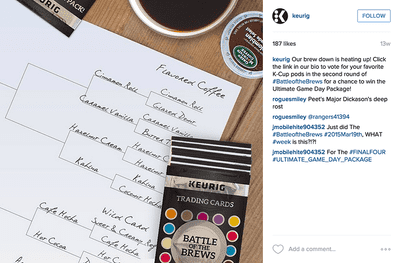 PACK
KEURIG
Flavored Coffee
Cinnamon Roll
Cinnamon Roll
Caramel Vanilla
Caramel Vanilla
Hazelnut Cream
Hazelnut Cream
Kahlua
Kahlua
Coconut Mocha
Wild Card
Cafe Mocha
Cafe Mocha
Hot Cocoa
KEURIG
TRADING CARDS
BATTLE
OF THE
BREWS
keurig
FOLLOW
187 likes
13w
keurig Our brew down is heating up! Click
the link in our bio to vote for your favorite
K-Cup pods in the second round of
#BattleoftheBrews for a chance to win the
Ultimate Game Day Package!
roguesmiley Peet's Major Dickason's deep
rost
roguesmiley @rangers41394
jmobilehite904352 Just did The
#BattleoftheBrews #2015Mar19th, WHAT
#week is this?!?!
jmobilehite904352 For The #FINALFOUR
#ULTIMATE_GAME_DAY_PACKAGE
Add a comment...